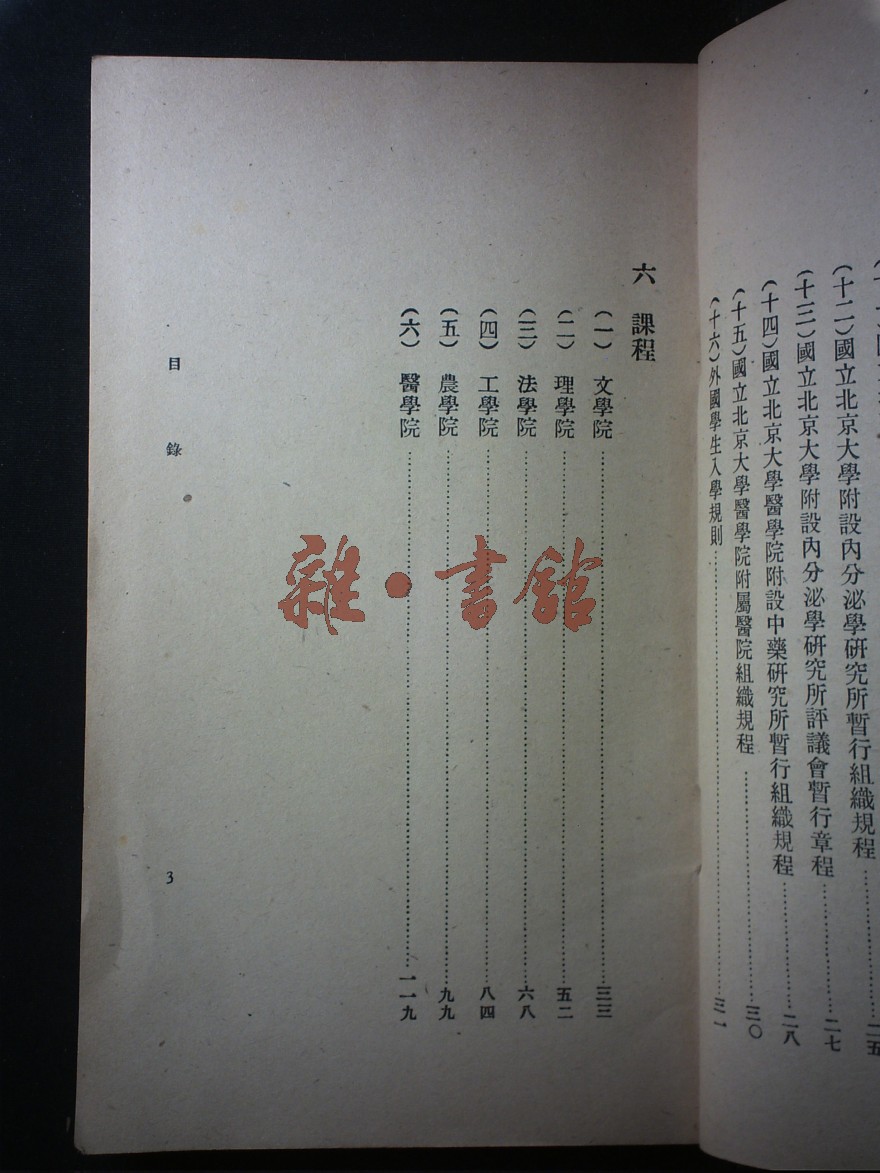 (十二)國立北京大學附設內分泌學研究所暫行組織規程……二五
(十三)國立北京大學附設內分泌學研究所評議會暫行章程……二七
(十四)國立北京大學醫學院附設中藥研究所暫行組織規程……二八
(十五)國立北京大學醫學院附屬醫院組織規程……三〇
(十六)外國學生入學規則……三一
六 課程
(一) 文學院……三三
(二) 理學院……五二
(三) 法學院……六八
(四) 工學院……八四
(五) 農學院……九九
(六) 醫學院……一一九
目錄
3
雜·書館